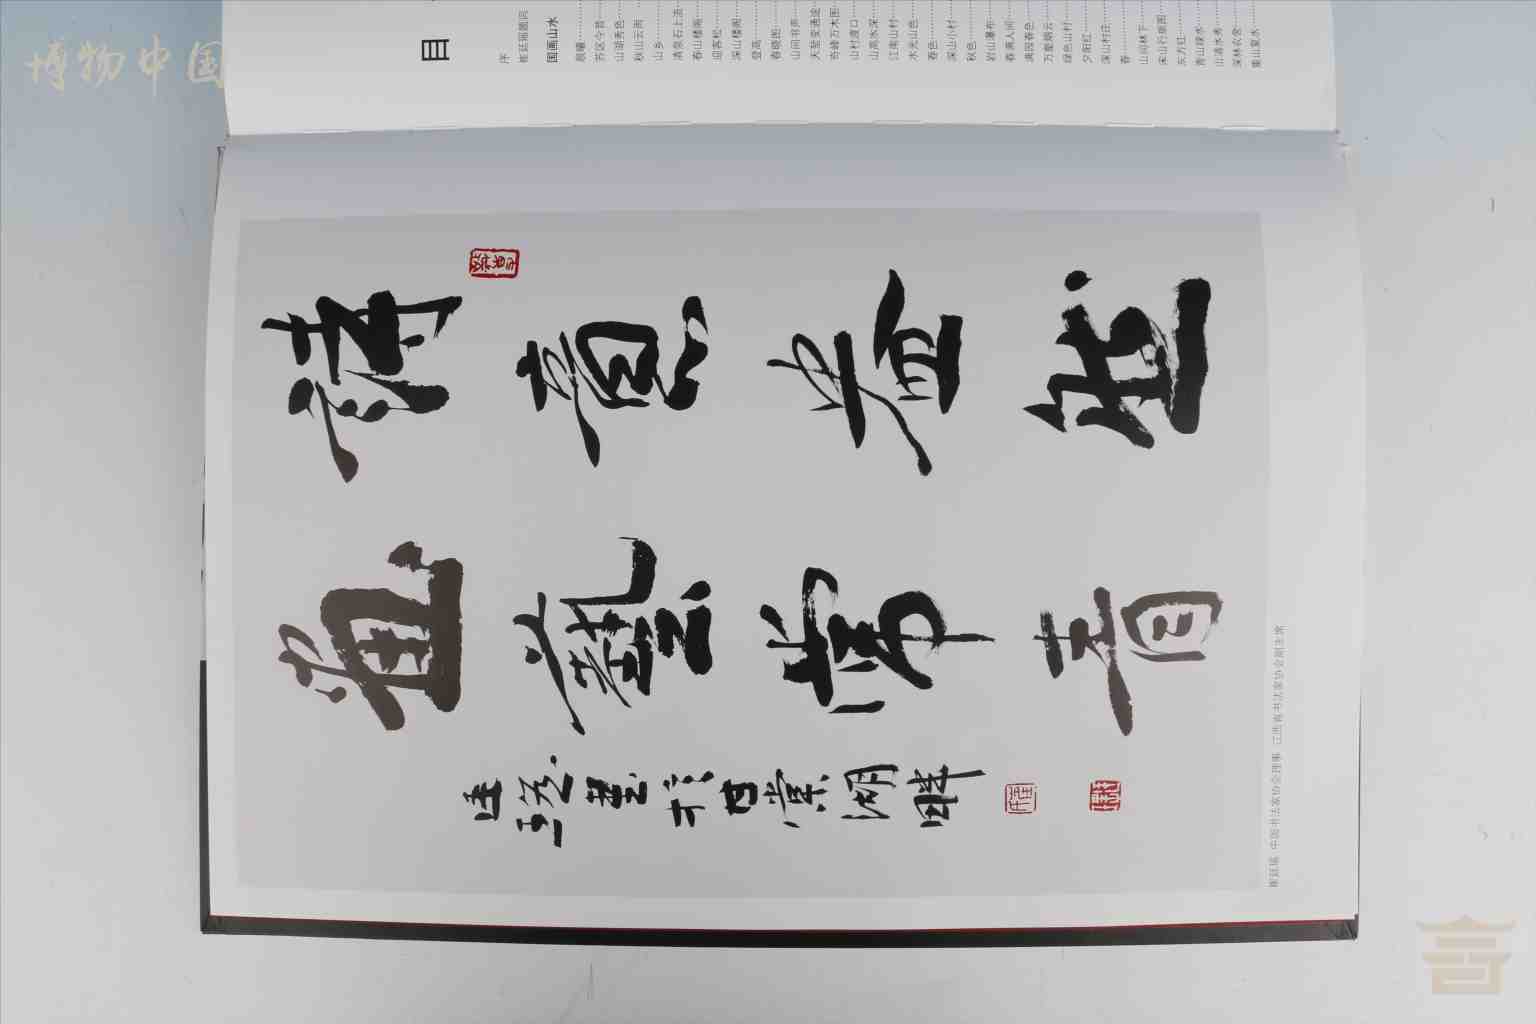 博物中国
目
序
崔廷瑶题词
国画山水
晨曦
苏区今昔
山湖秀色
秋山云雨
山乡
清泉石上流
春山楼阁
迎客松
深山楼阁
登高
春晓图
山间书声
天堑变通途
奇峰万木图
山村渡口
山高水深
江南山村
水光山色
春色
深山小村
秋色
岩山瀑布
春满人间
满园春色
万壑烟云
绿色山村
夕阳红
深山村庄
春
山间林下
东方红
青山绿水
山清水秀
深林农舍
重山复水
意
藝常青
廷瑶書於甘棠湖畔
崔廷瑶 中国书法家协会理事 江西省书法家协会副主席